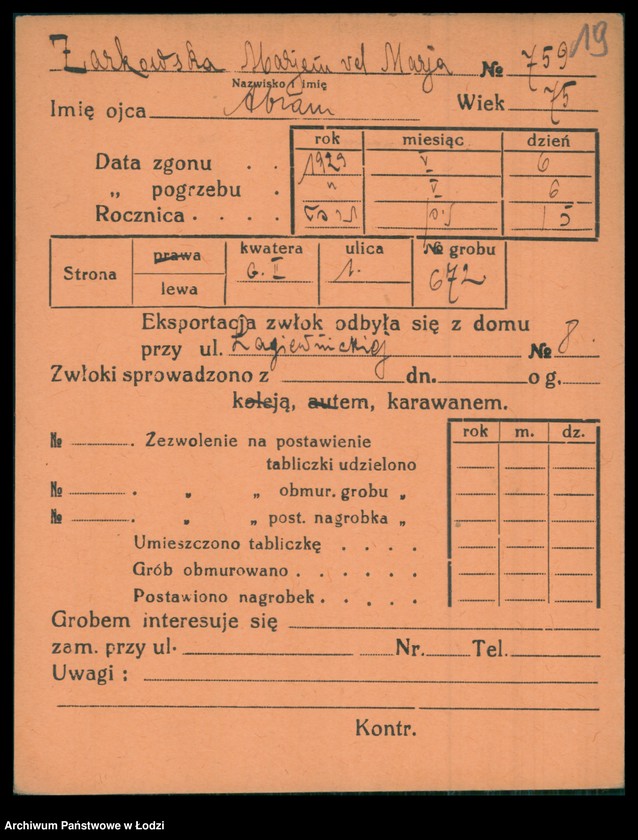 19
Żarkowska Marjem vel Marja № 759
Nazwisko i imię
Imię ojca Abram Wiek 75
rok miesiąc dzień
Data zgonu . . 1929 V 6
„ pogrzebu . " V 6
Rocznica . . . .
Strona prawa kwatera ulica № grobu
lewa G. I 1. 672
Eksportacja zwłok odbyła się z domu
przy ul. Łagiewnickiej № 8.
Zwłoki sprowadzono z dn. o g.
koleją, autem, karawanem.
rok m. dz.
№ . Zezwolenie na postawienie
tabliczki udzielono
№ . „ „ obmur. grobu „
№ . „ „ post. nagrobka „
Umieszczono tabliczkę . . . .
Grób obmurowano . . . . . .
Postawiono nagrobek . . . . .
Grobem interesuje się
zam. przy ul. Nr. Tel.
Uwagi :
Kontr.
Archiwum Państwowe w Łodzi